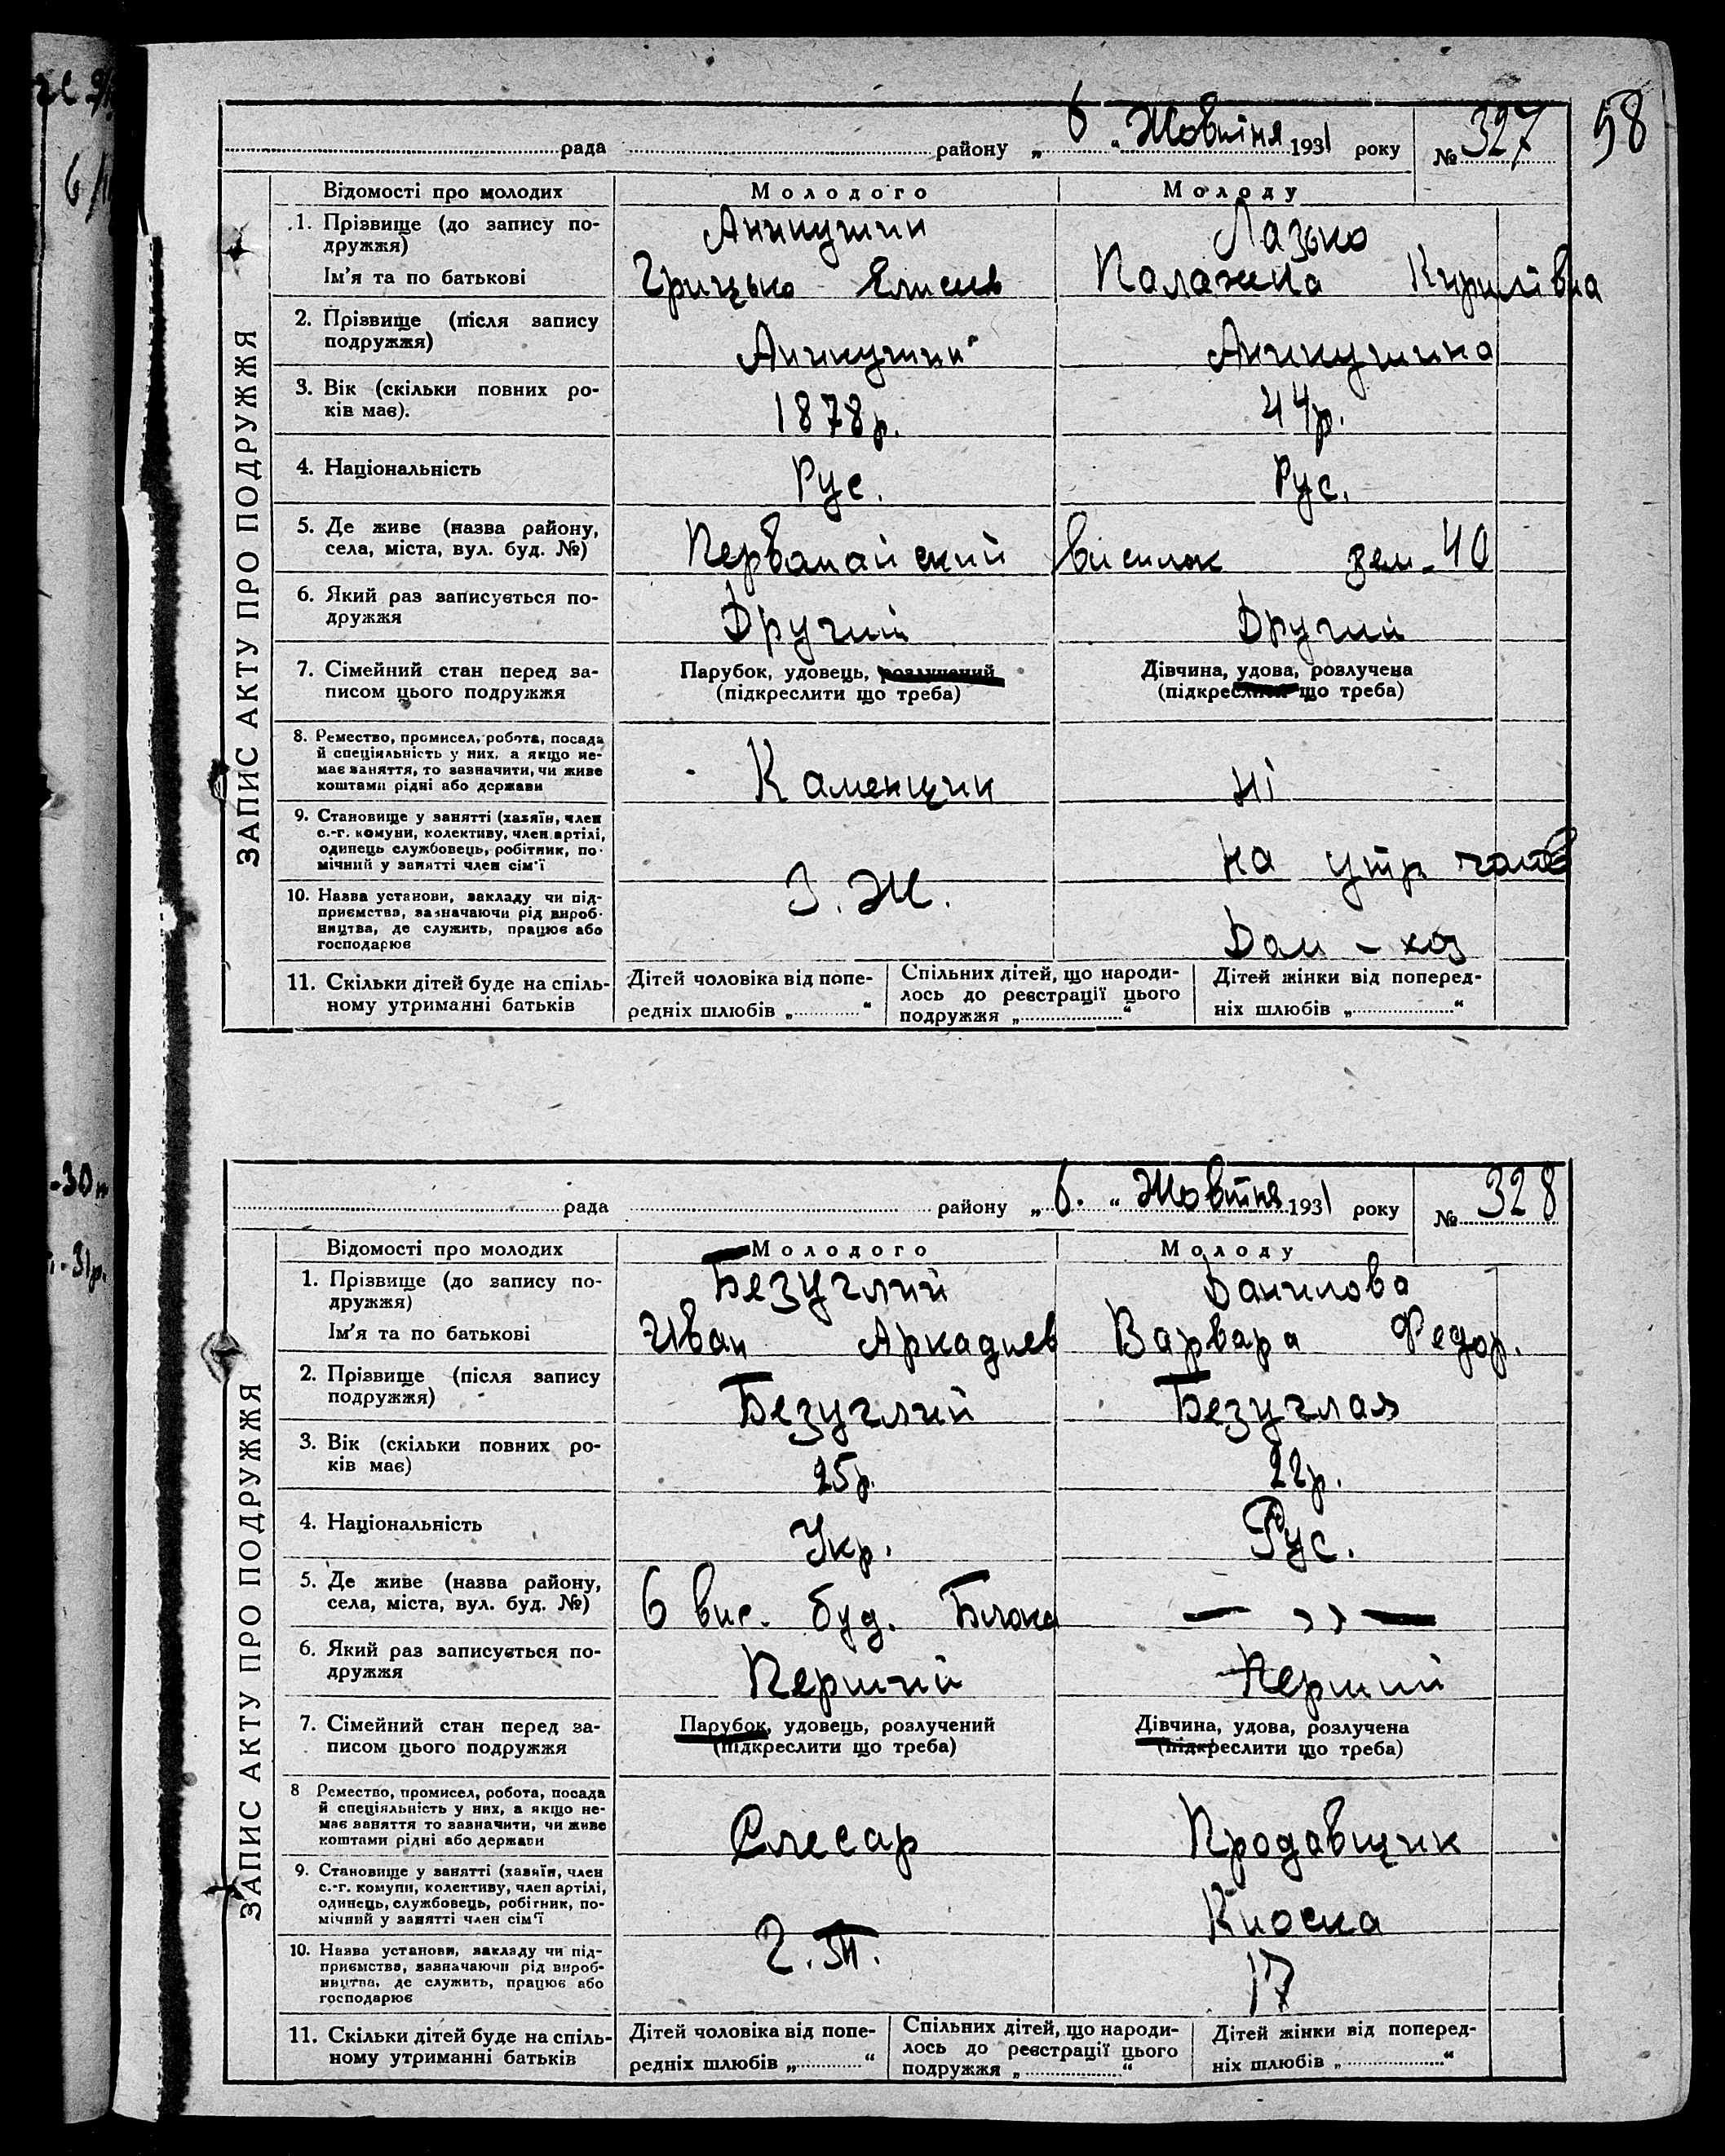 58
рада района „ 6 “ Жовтня 1931 року № 327
ЗАПИС АКТУ ПРО ПОДРУЖЖЯ
Відомості про молодих Молодого Молоду
1. Прізвище (до запису по-
дружжя) Аникушин Лазько
Ім'я та по батькові Грицько Елисеев Палажка Кирилівна
2. Прізвище (після запису
подружжя) Аникушин Аникушина
3. Вік (скільки повних ро-
ків має). 1878р. 44р.
4. Національність Рус. Рус.
5. Де живе (назва району,
села, міста, вул. буд. №) Первомайский виселок зем-40
6. Який раз записується по-
дружжя Другий Другий
7. Сімейний стан перед за-
писом цього подружжя
Парубок, удовець, розлучений
(підкреслити що треба)
Дівчина, удова, розлучена
(підкреслити що треба)
8. Ремество, промисел, робота, посада
й спеціяльність у них, а якщо не-
має заняття, то зазначити, чи живе
коштами рідні або держави
Каменщик Ні
9. Становище у занятті (хазяїн, член
с.-г. комуни, колективу, член артілі,
одинець службовець, робітник, по-
мічний у занятті член сім'ї
На утр.
10. Назва установи, закладу чи під-
приємства, зазначаючи рід вироб-
ництва, де служить, працює або
господарює
З. Ж. Дом-хоз
11. Скільки дітей буде на спіль-
ному утриманні батьків
Дітей чоловіка від попе-
редніх шлюбів „ “
Спільних дітей, що народи-
лось до реєстрації цього
подружжя „ “
Дітей жінки від поперед-
ніх шлюбів „ “
рада району „ 6. “ Жовтня 1931 року № 328
ЗАПИС АКТУ ПРО ПОДРУЖЖЯ
Відомості про молодих Молодого Молоду
1. Прізвище (до запису по-
дружжя) Безуглий Данилова
Ім'я та по батькові Иван Аркадиев Варвара Федор.
2. Прізвище (після запису
подружжя) Безуглий Безуглая
3. Вік (скільки повних ро-
ків має) 25р. 22р.
4. Національність Укр. Рус.
5. Де живе (назва району,
села, міста, вул. буд. №) 6 вис. буд. Блока — ,, —
6. Який раз записується по-
дружжя Перший Перший
7. Сімейний стан перед за-
писом цього подружжя
Парубок, удовець, розлучений
(підкреслити що треба)
Дівчина, удова, розлучена
(підкреслити що треба)
8 Ремество, промисел, робота, посада
й спеціяльність у них, а якщо не-
має заняття то зазначити, чи живе
коштами рідні або держави
Слесар Продавщик
9. Становище у занятті (хазяїн, член
с.-г. комуни, колективу, член артілі,
одинець, службовець, робітник, по-
мічний у занятті член сім'ї
Киоска
10. Назва установи, закладу чи під-
приємства, зазначаючи рід вироб-
ництва, де служить, працює або
господарює
17
11. Скільки дітей буде на спіль-
ному утриманні батьків
Дітей чоловіка від попе-
редніх шлюбів „ “
Спільних дітей, що народи-
лось до реєстрації цього
подружжя „ “
Дітей жінки від поперед-
ніх шлюбів „ “